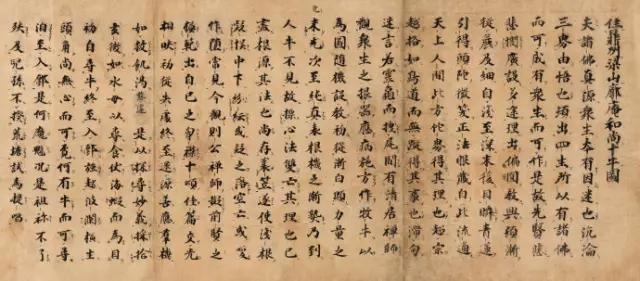 住鼎州梁山廓庵和尚十牛圖
夫諸佛真源衆生本有因迷也沉淪
三界由悟也頓出四生所以有諸佛
而可成有衆生而可作是故先賢
悲憫廣設多途理出偏圓教興頓漸
從麁及細自淺至深末後目瞬青蓮
引得頭陀微笑正法眼藏自此流通
天上人間此方他界得其理也超宗
越格如鳥道而無蹤得其事也滯句
迷言若靈龜而曳尾間有清居禪師
觀衆生之根器應病施方作牧牛以
為圖隨機設教初從漸白顯力量之
未充次至純真表根機之漸熟乃到
人牛不見故標心法雙亡其理也已
盡根源其法也尚存莎笠遂使淺根
疑悞中下紛紜或疑之落空亡或喚
作墮常見今觀則公禪師擬前賢之
模範出自己之胸襟十頌佳篇交光
相映初從失處終至還源善應羣機
如救飢渴慈遠是以探尋妙義採拾
玄微如水母以尋飡依海蝦而為目
初自尋牛終至入鄽強起波瀾橫生
頭角尚無心而可覓何有牛而可尋
洎至入鄽是何魔魅況是祖禰不了
殃及兒孫不揆荒唐試為提唱